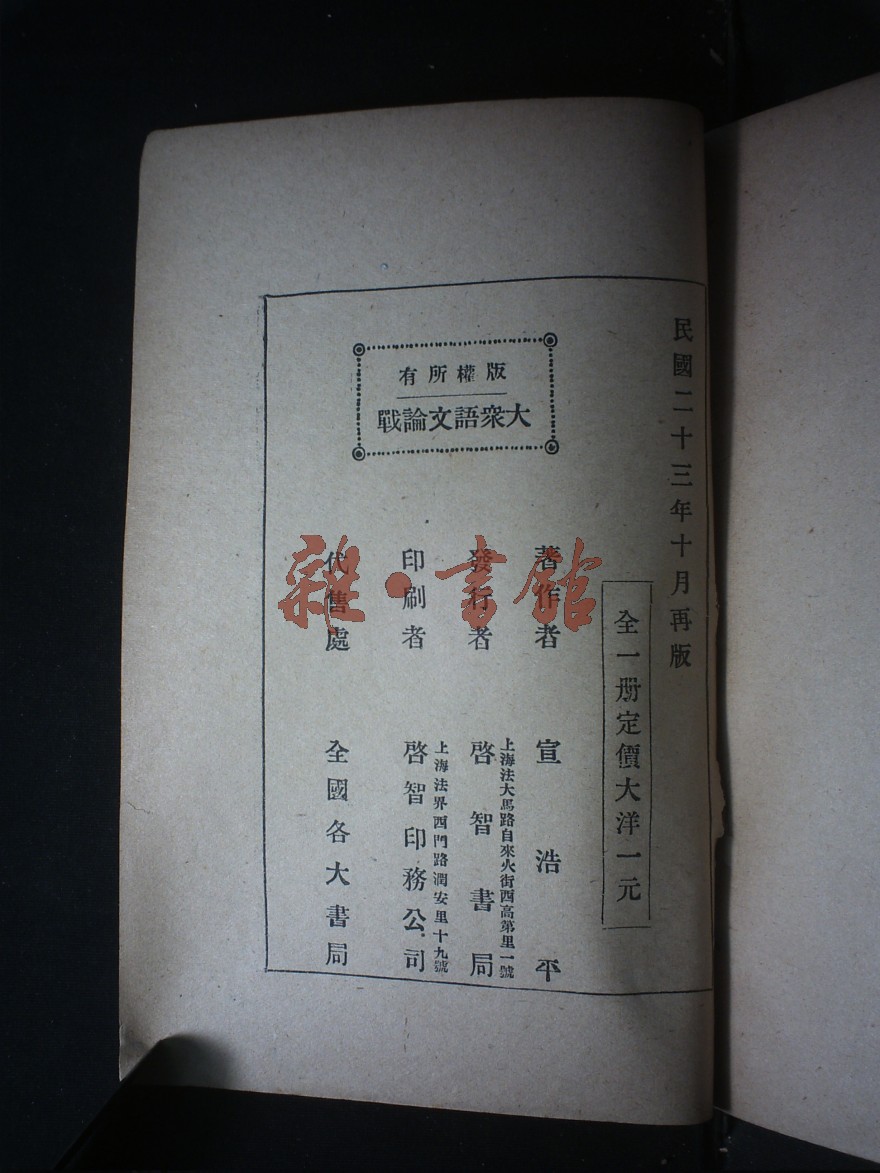 民國二十三年十月再版
全一册定價大洋一元
版權所有
大衆語文論戰
著作者 宣浩平
上海法大馬路自來火街西高第里一號
發行者 啓智書局
上海法界西門路潤安里十九號
印刷者 啓智印務公司
代售處 全國各大書局
雜·書館